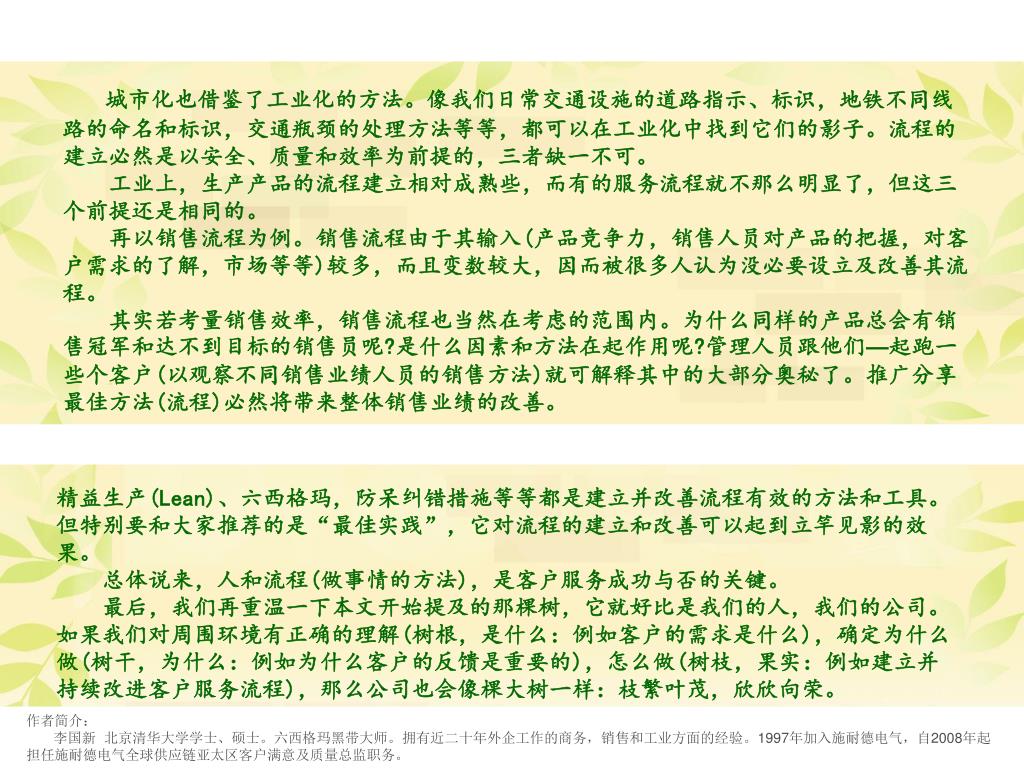 城市化也借鉴了工业化的方法。像我们日常交通设施的道路指示、标识，地铁不同线
路的命名和标识，交通瓶颈的处理方法等等，都可以在工业化中找到它们的影子。流程的
建立必然是以安全、质量和效率为前提的，三者缺一不可。
工业上，生产产品的流程建立相对成熟些，而有的服务流程就不那么明显了，但这三
个前提还是相同的。
再以销售流程为例。销售流程由于其输入(产品竞争力，销售人员对产品的把握，对客
户需求的了解，市场等等)较多，而且变数较大，因而被很多人认为没必要设立及改善其流
程。
其实若考量销售效率，销售流程也当然在考虑的范围内。为什么同样的产品总会有销
售冠军和达不到目标的销售员呢?是什么因素和方法在起作用呢?管理人员跟他们—起跑一
些个客户(以观察不同销售业绩人员的销售方法)就可解释其中的大部分奥秘了。推广分享
最佳方法(流程)必然将带来整体销售业绩的改善。
精益生产(Lean)、六西格玛，防呆纠错措施等等都是建立并改善流程有效的方法和工具。
但特别要和大家推荐的是“最佳实践”，它对流程的建立和改善可以起到立竿见影的效
果。
总体说来，人和流程(做事情的方法)，是客户服务成功与否的关键。
最后，我们再重温一下本文开始提及的那棵树，它就好比是我们的人，我们的公司。
如果我们对周围环境有正确的理解(树根，是什么：例如客户的需求是什么)，确定为什么
做(树干，为什么：例如为什么客户的反馈是重要的)，怎么做(树枝，果实：例如建立并
持续改进客户服务流程)，那么公司也会像棵大树一样：枝繁叶茂，欣欣向荣。
作者简介：
李国新 北京清华大学学士、硕士。六西格玛黑带大师。拥有近二十年外企工作的商务，销售和工业方面的经验。1997年加入施耐德电气，自2008年起
担任施耐德电气全球供应链亚太区客户满意及质量总监职务。